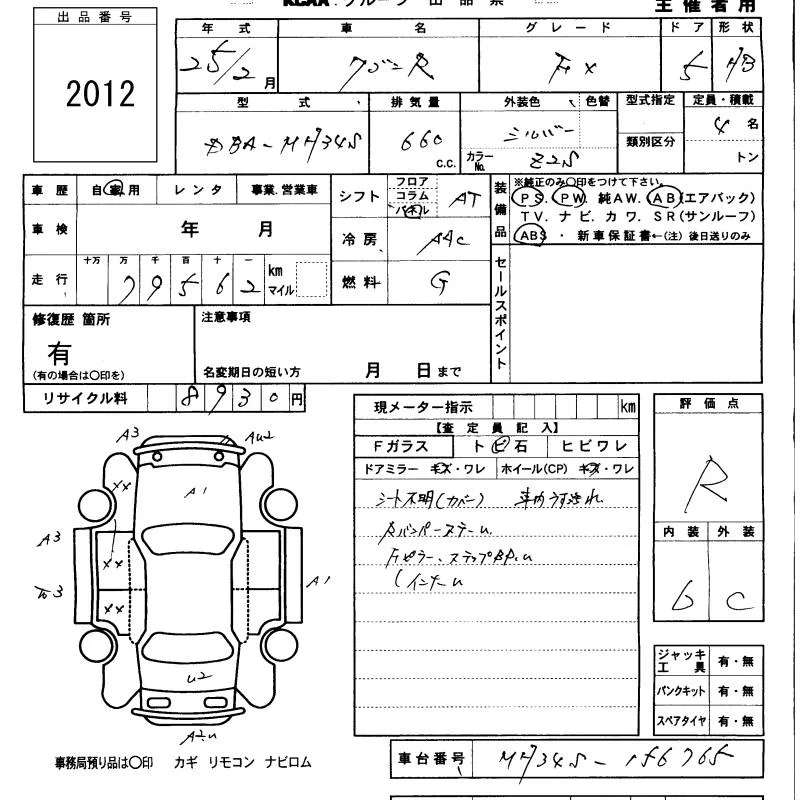 KCAA.グループ 出品票
主催者用
出品番号
2012
年式 車名 グレード ドア 形状
25/2月 ワゴンR FX 5 HB
型式 排気量 外装色 色替 型式指定 定員・積載
DBA-MH34S 660 c.c. シルバー カラーNo. Z2S 類別区分 4名 トン
車歴 自家用 レンタ 事業.営業車
車検 年 月
走行 十万 万 千 百 十 一
79562 km マイル
シフト フロア コラム パネル AT
冷房 AAC
燃料 G
装備品 ※純正のみ○印をつけて下さい。
PS. PW 純AW. AB(エアバック)
TV. ナビ. カワ. SR(サンルーフ)
ABS・新車保証書←(注)後日送りのみ
セールスポイント
修復歴 箇所
有
(有の場合は○印を)
注意事項
名変期日の短い方 月 日まで
リサイクル料 8930円
現メーター指示 km
【査定員記入】
Fガラス トビ石 ヒビワレ
ドアミラー キズ・ワレ ホイール(CP) キズ・ワレ
シート不明(カバー) 車内うす汚れ
RバンパーステーU
Fピラー、ステップBP.U
(インナーU
評価点
R
内装 外装
b C
A3 AU2
XX A1
A3
XX
A1
XX
U2
A2.U
ジャッキ工具 有・無
パンクキット 有・無
スペアタイヤ 有・無
事務局預り品は○印 カギ リモコン ナビロム
車台番号 MH34S-156765